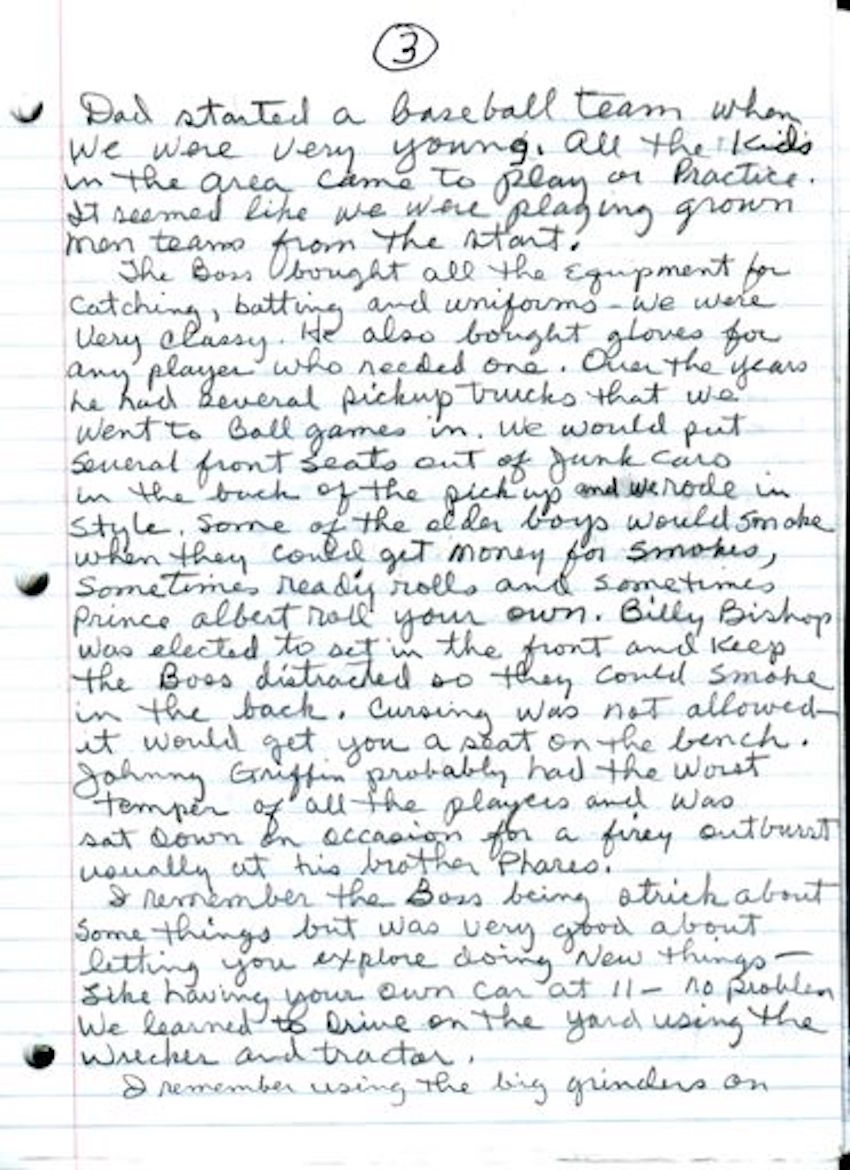 3
Dad started a baseball team when
we were very young. All the kids
in the area came to play or Practice.
It seemed like we were playing grown
men teams from the start.
The Boss bought all the Equipment for
catching, batting and uniforms - we were
very classy. He also bought gloves for
any player who needed one. Over the years
he had several pickup trucks that we
went to Ball games in. We would put
several front seats out of Junk cars
in the back of the pickup and we rode in
style. Some of the older boys would smoke
when they could get money for smokes,
sometimes ready rolls and sometimes
Prince albert roll your own. Billy Bishop
was elected to set in the front and keep
the Boss distracted so they could smoke
in the back. Cursing was not allowed -
it would get you a seat on the bench.
Johnny Griffin probably had the worst
temper of all the players and was
sat down on occasion for a firey outburst
usually at his brother Phares.
I remember the Boss being strick about
some things but was very good about
letting you explore doing New things -
Like having your own car at 11 - no problem
We learned to Drive on the yard using the
wrecker and tractor.
I remember using the big grinders on